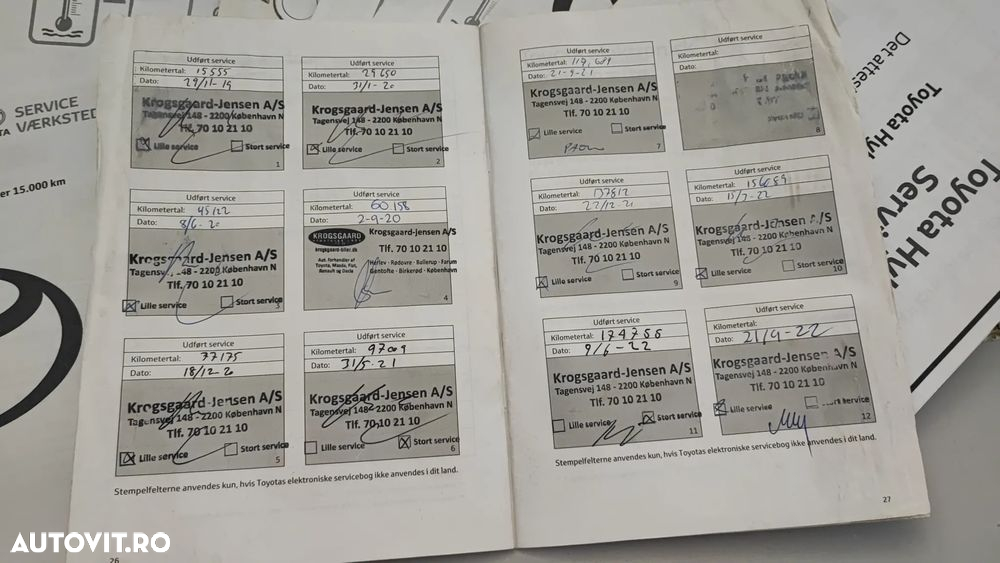 SERVICE
VÆRKSTED
15.000 km
Udført service
Kilometertal: 15555
Dato: 29/11-19
Krogsgaard-Jensen A/S
Tagensvej 148 - 2200 København N
Tlf. 70 10 21 10
Lille service
Stort service
1
Udført service
Kilometertal: 29650
Dato: 31/1-20
Krogsgaard-Jensen A/S
Tagensvej 148 - 2200 København N
Tlf. 70 10 21 10
Lille service
Stort service
2
Udført service
Kilometertal: 45122
Dato: 8/6-20
Krogsgaard-Jensen A/S
Tagensvej 148 - 2200 København N
Tlf. 70 10 21 10
Lille service
Stort service
3
Udført service
Kilometertal: 60158
Dato: 2-9-20
KROGSGAARD
krogsgaard-biler.dk
Aut. forhandler af
Toyota, Mazda, Fiat,
Renault og Dacia
Krogsgaard-Jensen A/S
Tlf. 70 10 21 10
Herlev · Rødovre · Ballerup · Farum
Gentofte · Birkerød · København
4
Udført service
Kilometertal: 77175
Dato: 18/12-20
Krogsgaard-Jensen A/S
Tagensvej 148 - 2200 København N
Tlf. 70 10 21 10
Lille service
Stort service
5
Udført service
Kilometertal:
Dato: 31/5-21
Krogsgaard-Jensen A/S
Tagensvej 148 - 2200 København N
Tlf. 70 10 21 10
Lille service
Stort service
6
Stempelfelterne anvendes kun, hvis Toyotas elektroniske servicebog ikke anvendes i dit land.
26
Udført service
Kilometertal:
Dato: 21-9-21
Krogsgaard-Jensen A/S
Tagensvej 148 - 2200 København N
Tlf. 70 10 21 10
Lille service
Stort service
7
Udført service
Kilometertal:
Dato:
8
Udført service
Kilometertal: 137812
Dato: 22/12-21
Krogsgaard-Jensen A/S
Tagensvej 148 - 2200 København N
Tlf. 70 10 21 10
Lille service
Stort service
9
Udført service
Kilometertal:
Dato:
Krogsgaard-Jensen A/S
Tagensvej 148 - 2200 København N
Tlf. 70 10 21 10
Lille service
Stort service
10
Udført service
Kilometertal: 174755
Dato: 9/6-22
Krogsgaard-Jensen A/S
Tagensvej 148 - 2200 København N
Tlf. 70 10 21 10
Lille service
Stort service
11
Udført service
Kilometertal:
Dato: 21/9-22
Krogsgaard-Jensen A/S
Tagensvej 148 - 2200 København N
Tlf. 70 10 21 10
Lille service
12
Stempelfelterne anvendes kun, hvis Toyotas elektroniske servicebog ikke anvendes i dit land.
27
Det
Toyota
Toyota
AUTOVIT.RO